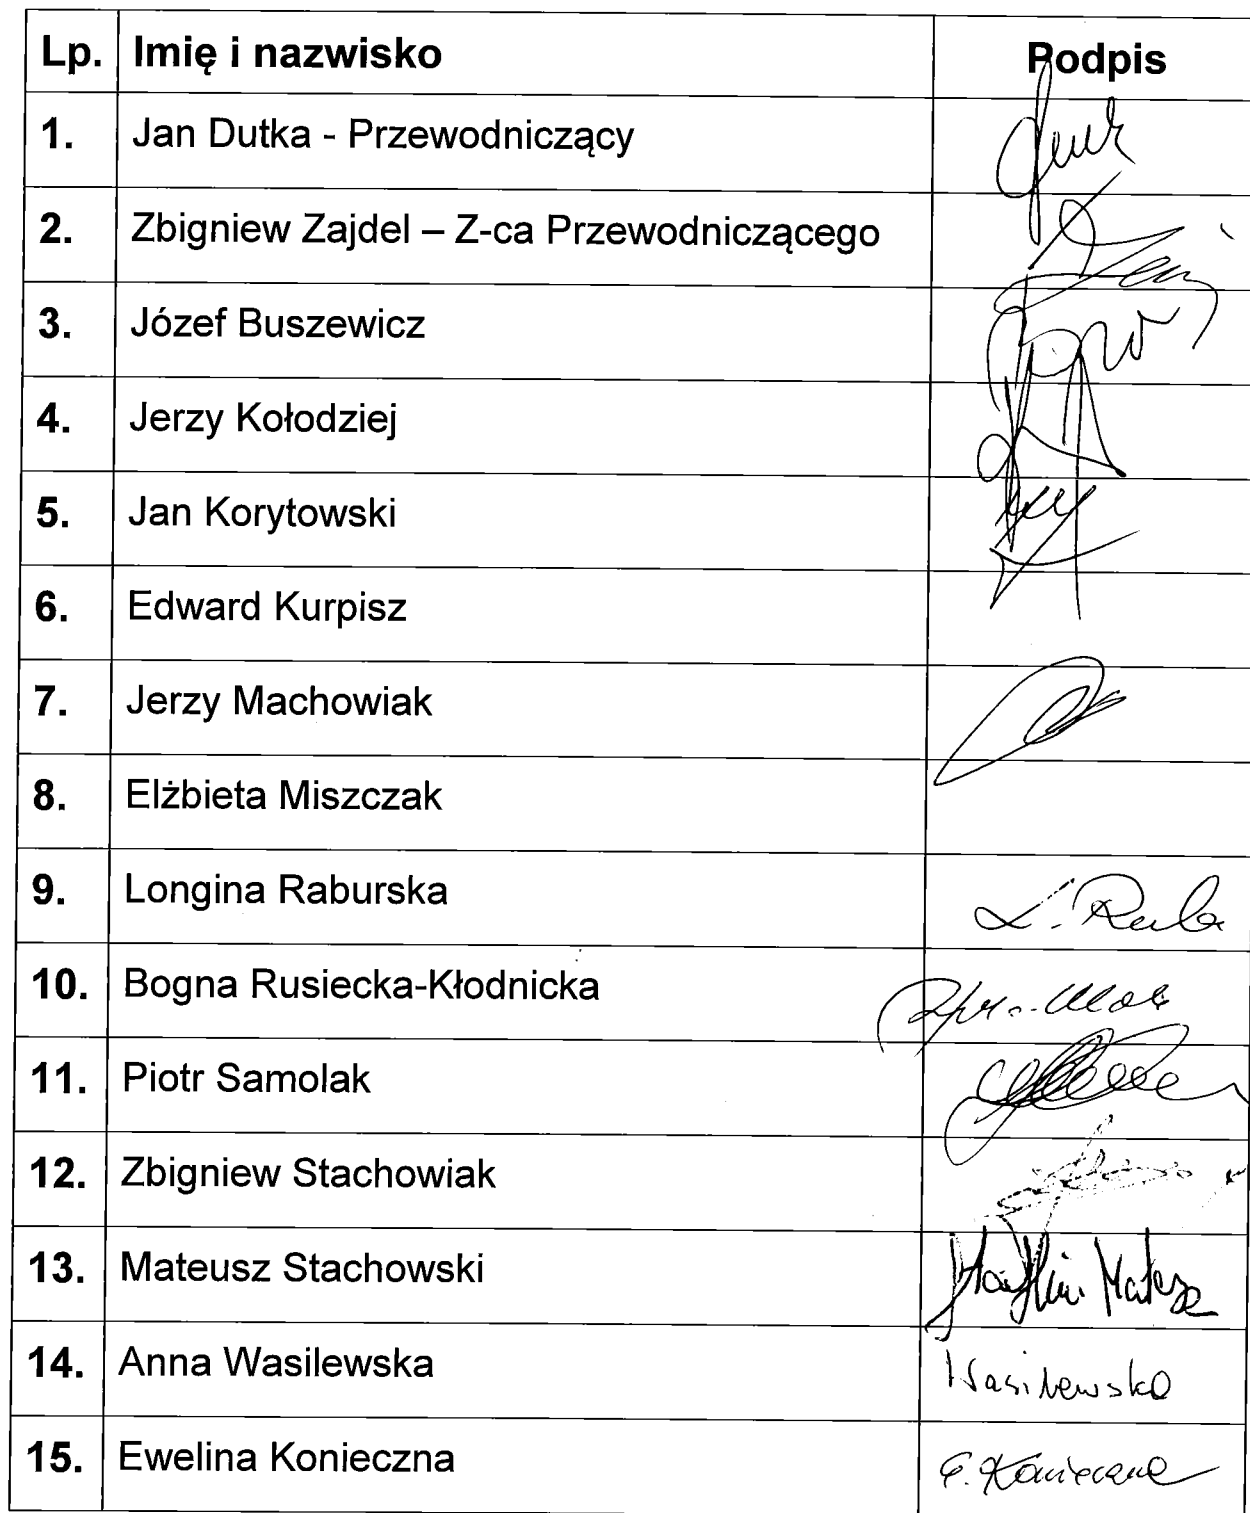 Lp. Imię i nazwisko Podpis
1. Jan Dutka - Przewodniczący
2. Zbigniew Zajdel – Z-ca Przewodniczącego
3. Józef Buszewicz
4. Jerzy Kołodziej
5. Jan Korytowski
6. Edward Kurpisz
7. Jerzy Machowiak
8. Elżbieta Miszczak
9. Longina Raburska L. Rab
10. Bogna Rusiecka-Kłodnicka
11. Piotr Samolak
12. Zbigniew Stachowiak
13. Mateusz Stachowski
14. Anna Wasilewska Wasilewska
15. Ewelina Konieczna E. Konieczna